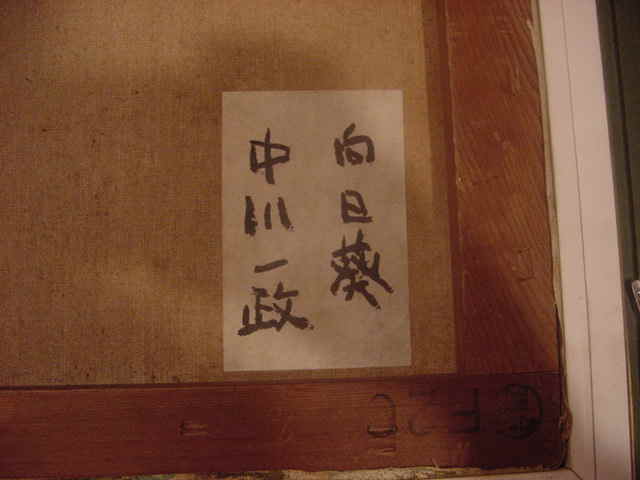 向日葵
中川一政
F20